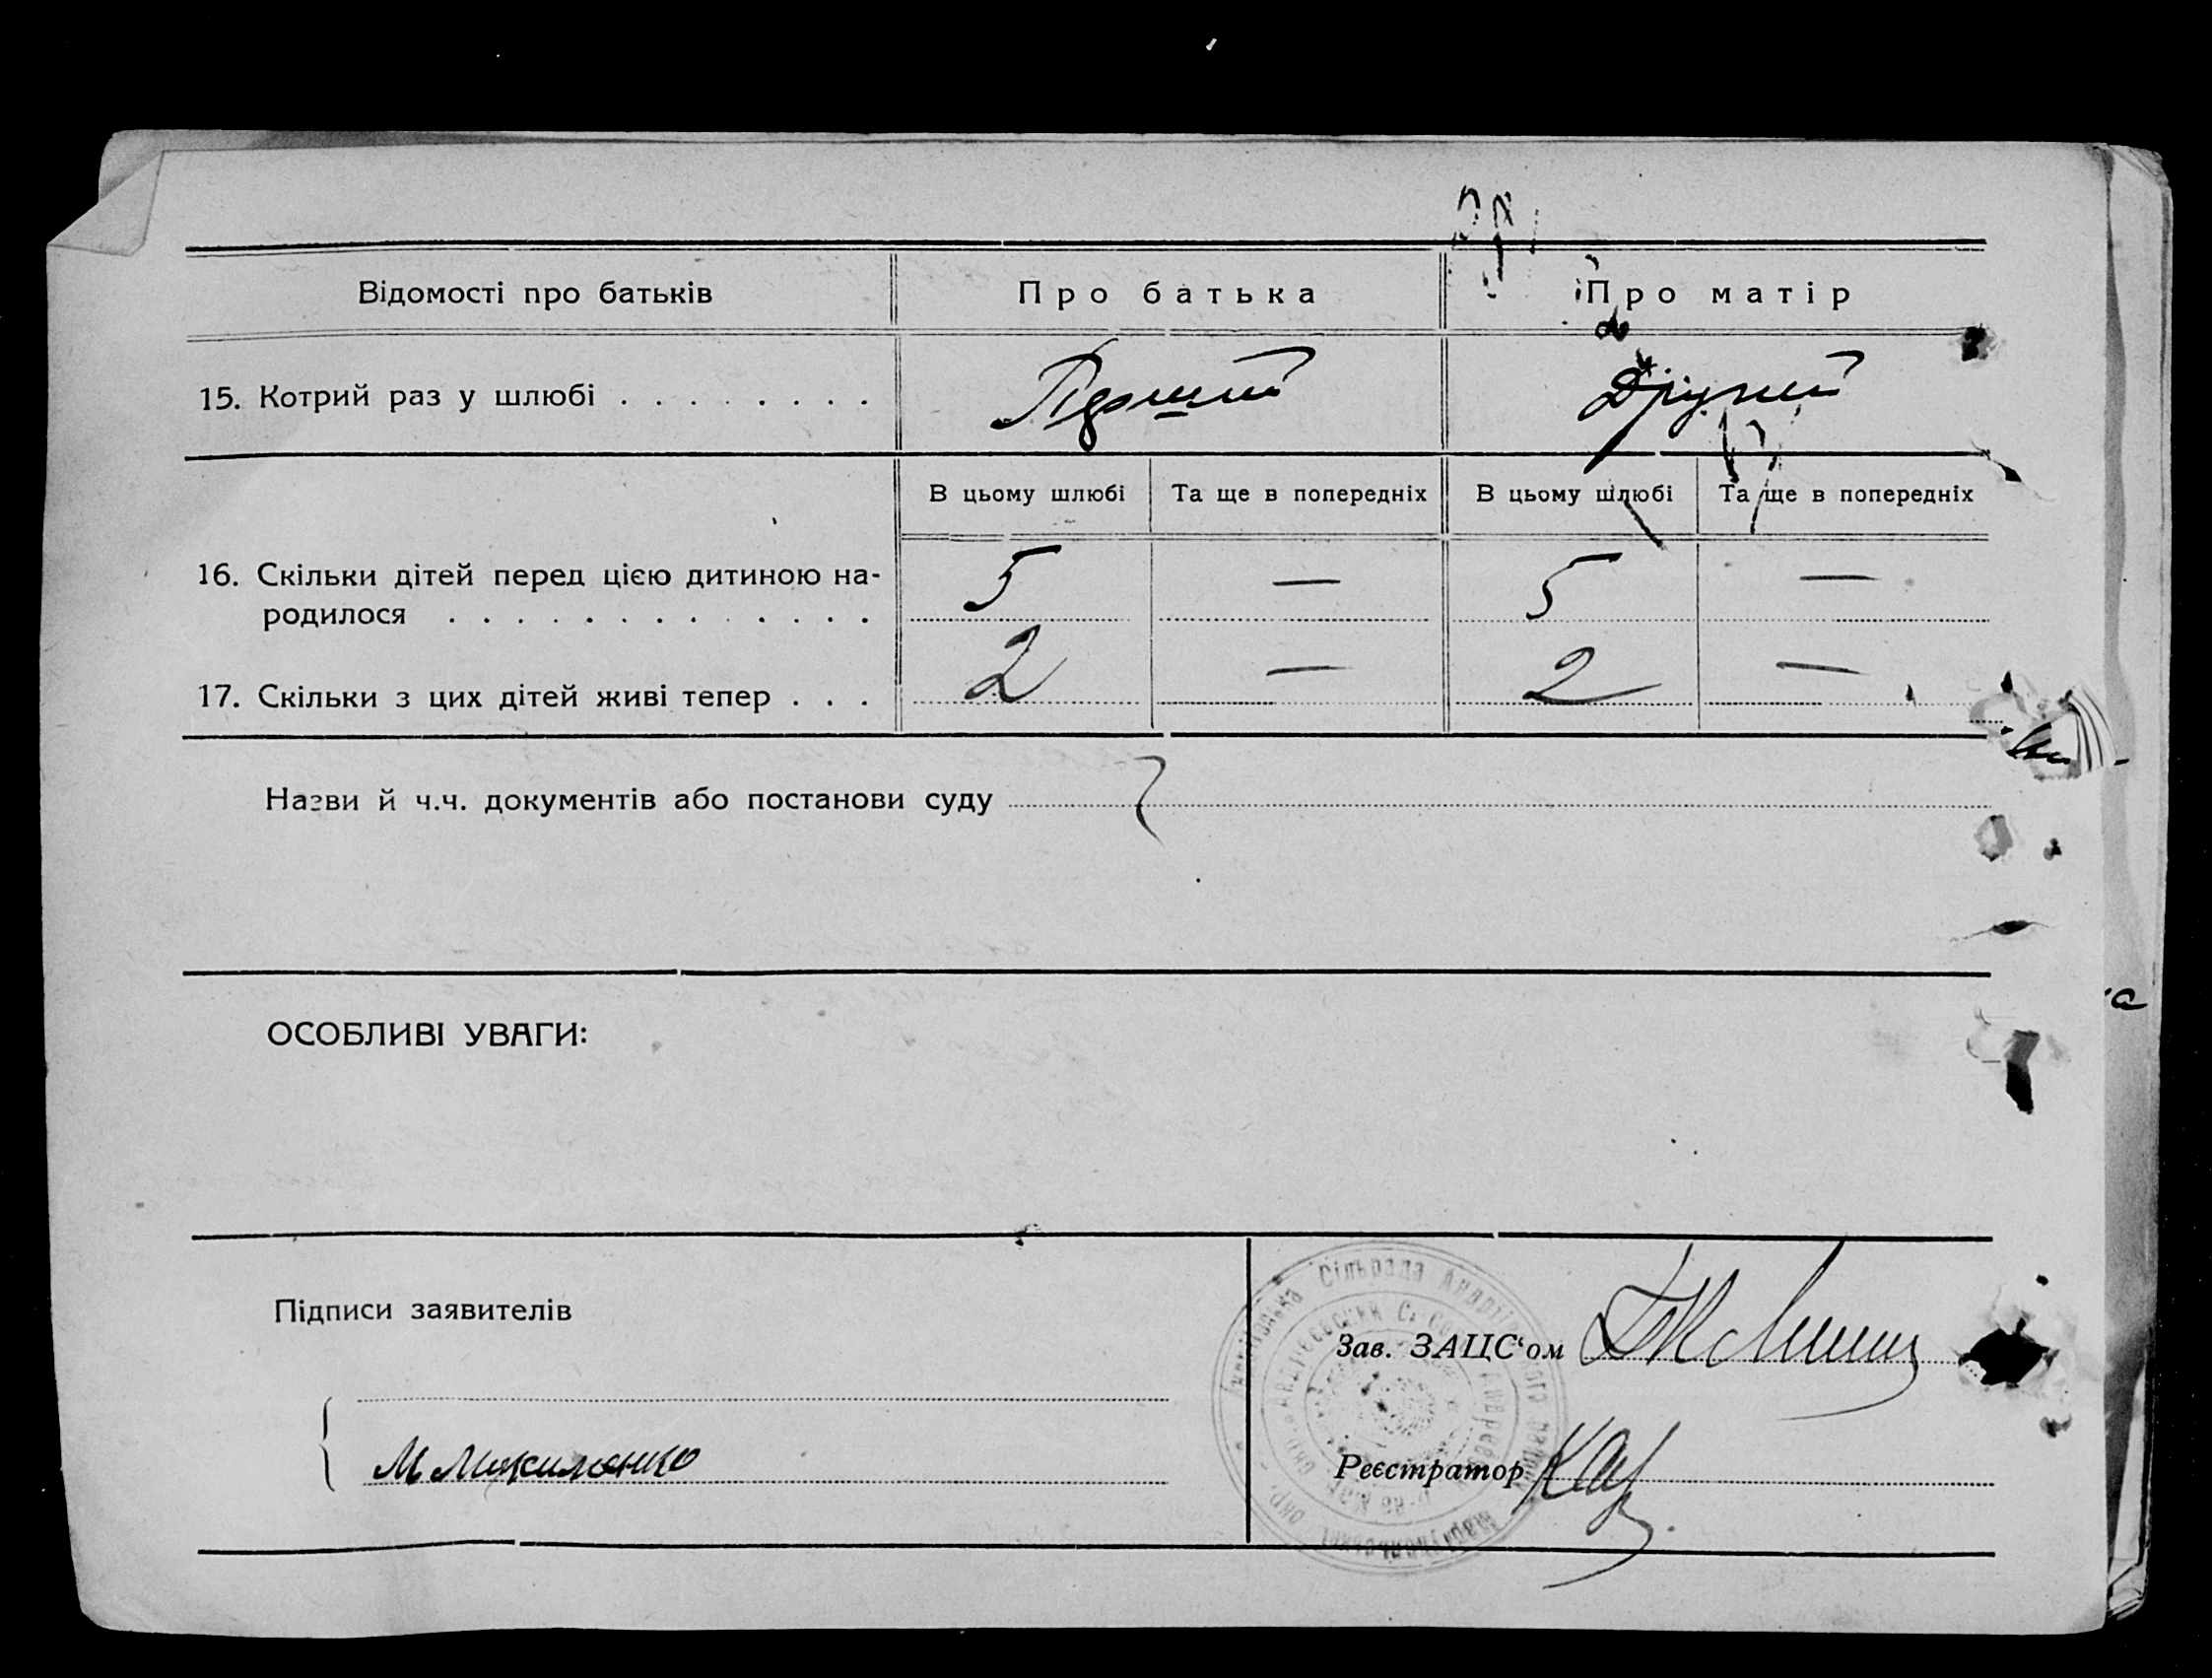 Відомості про батьків
Про батька
Про матір
15. Котрий раз у шлюбі . . . . . . . .
Перший
Другий
В цьому шлюбі
Та ще в попередніх
В цьому шлюбі
Та ще в попередніх
16. Скільки дітей перед цією дитиною на-
родилося . . . . . . . . . . . . .
5
—
5
—
17. Скільки з цих дітей живі тепер . . .
2
—
2
—
Назви й ч.ч. документів або постанови суду
ОСОБЛИВІ УВАГИ:
Підписи заявителів
Зав. ЗАЦС‘ом
Реєстратор
Сільрада